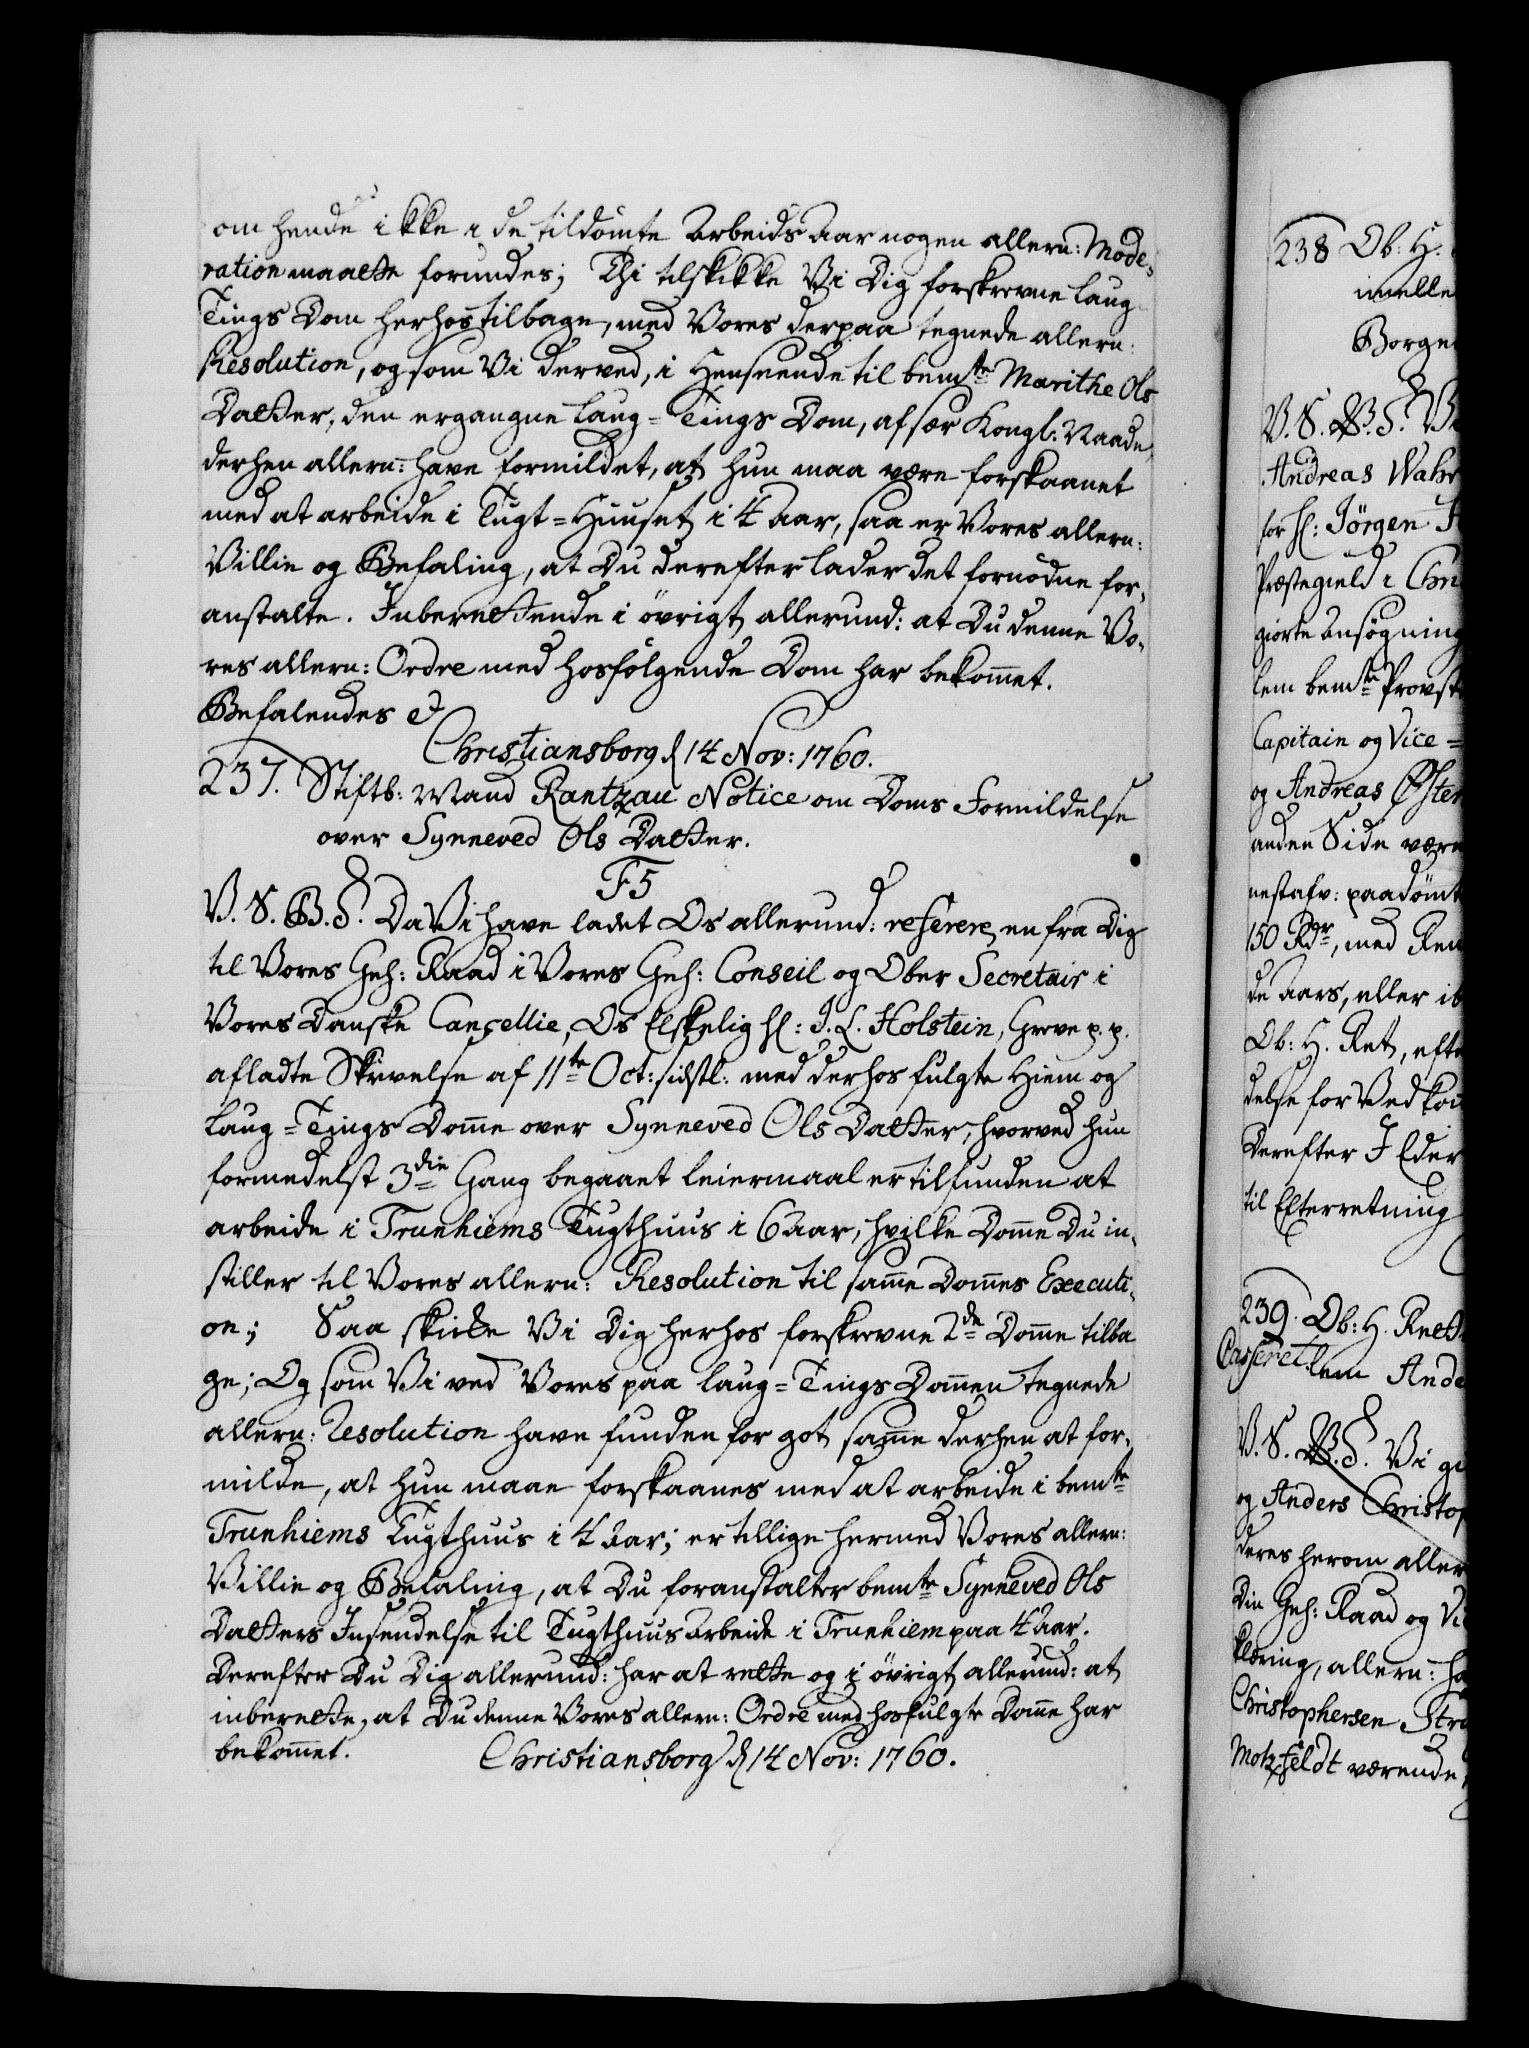 om hende ikke i de tildømte Arbeids Aar nogen allern: Mode-
ration maatte forundes; Thi tilskikke Vi Dig forskrevne Laug
Tings Dom herhos tilbage, med Vores derpaa tegnede allern:
Resolution, og som Vi derved, i Henseende til bemte Marithe Ols
Datter, den ergangne Laug-Tings Dom, af sær Kongl: Naade,
derhen allern: have formildet, at hun maa være forskaanet
med at arbeide i Tugt-Huuset i 4 Aar, saa er Vores allern:
Villie og Befaling, at Du derefter lader det fornødne for-
anstalte. Inberettende i øvrigt allerund: at Du denne Vo-
res allern: Ordre med hosfølgende Dom har bekommet.
Befalendes &
Christiansborg d 14 Nov: 1760.
237. Stiftb: Mand Rantzau Notice om Doms Formildelse
over Synneved Ols Datter.
F5
V. S. B. S. Da Vi have ladet Os allerund: referere, en fra Dig
til Vores Geh: Raad i Vores Geh: Conseil og Ober Secretair i
Vores Danske Cancellie, Os Elskelig H: J. L. Holstein, Greve p. p.
afladte Skrivelse af 11te Oct: sidstl: med derhos fulgte Hiem og
Laug-Tings Domme over Synneved Ols Datter, hvorved hun
formedelst 3die Gang begaaet Leiermaal er tilfunden at
arbeide i Trunhiems Tugthuus i 6 Aar, hvilke Domme Du in-
stiller til Vores allern: Resolution til samme Dommes Executi-
on; Saa skicke Vi Dig herhos forskrevne 2de Domme tilba
ge; Og som Vi ved Vores paa Laug-Tings Dommen tegnede
allern: Resolution have funden for got samme derhen at for-
milde, at hun maae forskaanes med at arbeide i bemte
Trunhiems Tugthuus i 4 Aar; er tillige hermed Vores allern:
Villie og Befaling, at Du foranstalter bemte Synneved Ols
Datters Insendelse til Tugthuus Arbeide i Trunhiem paa 4 Aar.
Derefter Du Dig allerund: har at rette og i øvrigt allerund: at
inberette, at Du denne Vores allern: Ordre med hosfulgte Domme har
bekommet. Christiansborg d 14 Nov: 1760.
238 Ob: H.
imelle
Borge
V. S. B. S. V
Andreas Wahr
for H: Jörgen
Præstegield i Chri
giorte Ansøgning
lem bemte Provst
Capitain og Vice-
og Andreas Øster
anden Side være
nestafv: paadømt
150 Rdr, med Ren
de Aars, eller
Ob: H. Ret, efte
delse for Vedkom
Derefter I Eder
til Efterretning
239. Ob: H. Rett
Casseret. lem Ande
V. S. B. S. Vi gi
og Anders Christop
deres herom aller
Din Geh: Raad og Vi
klæring, allern: ha
Christophersen Str
Motzfeldt værende